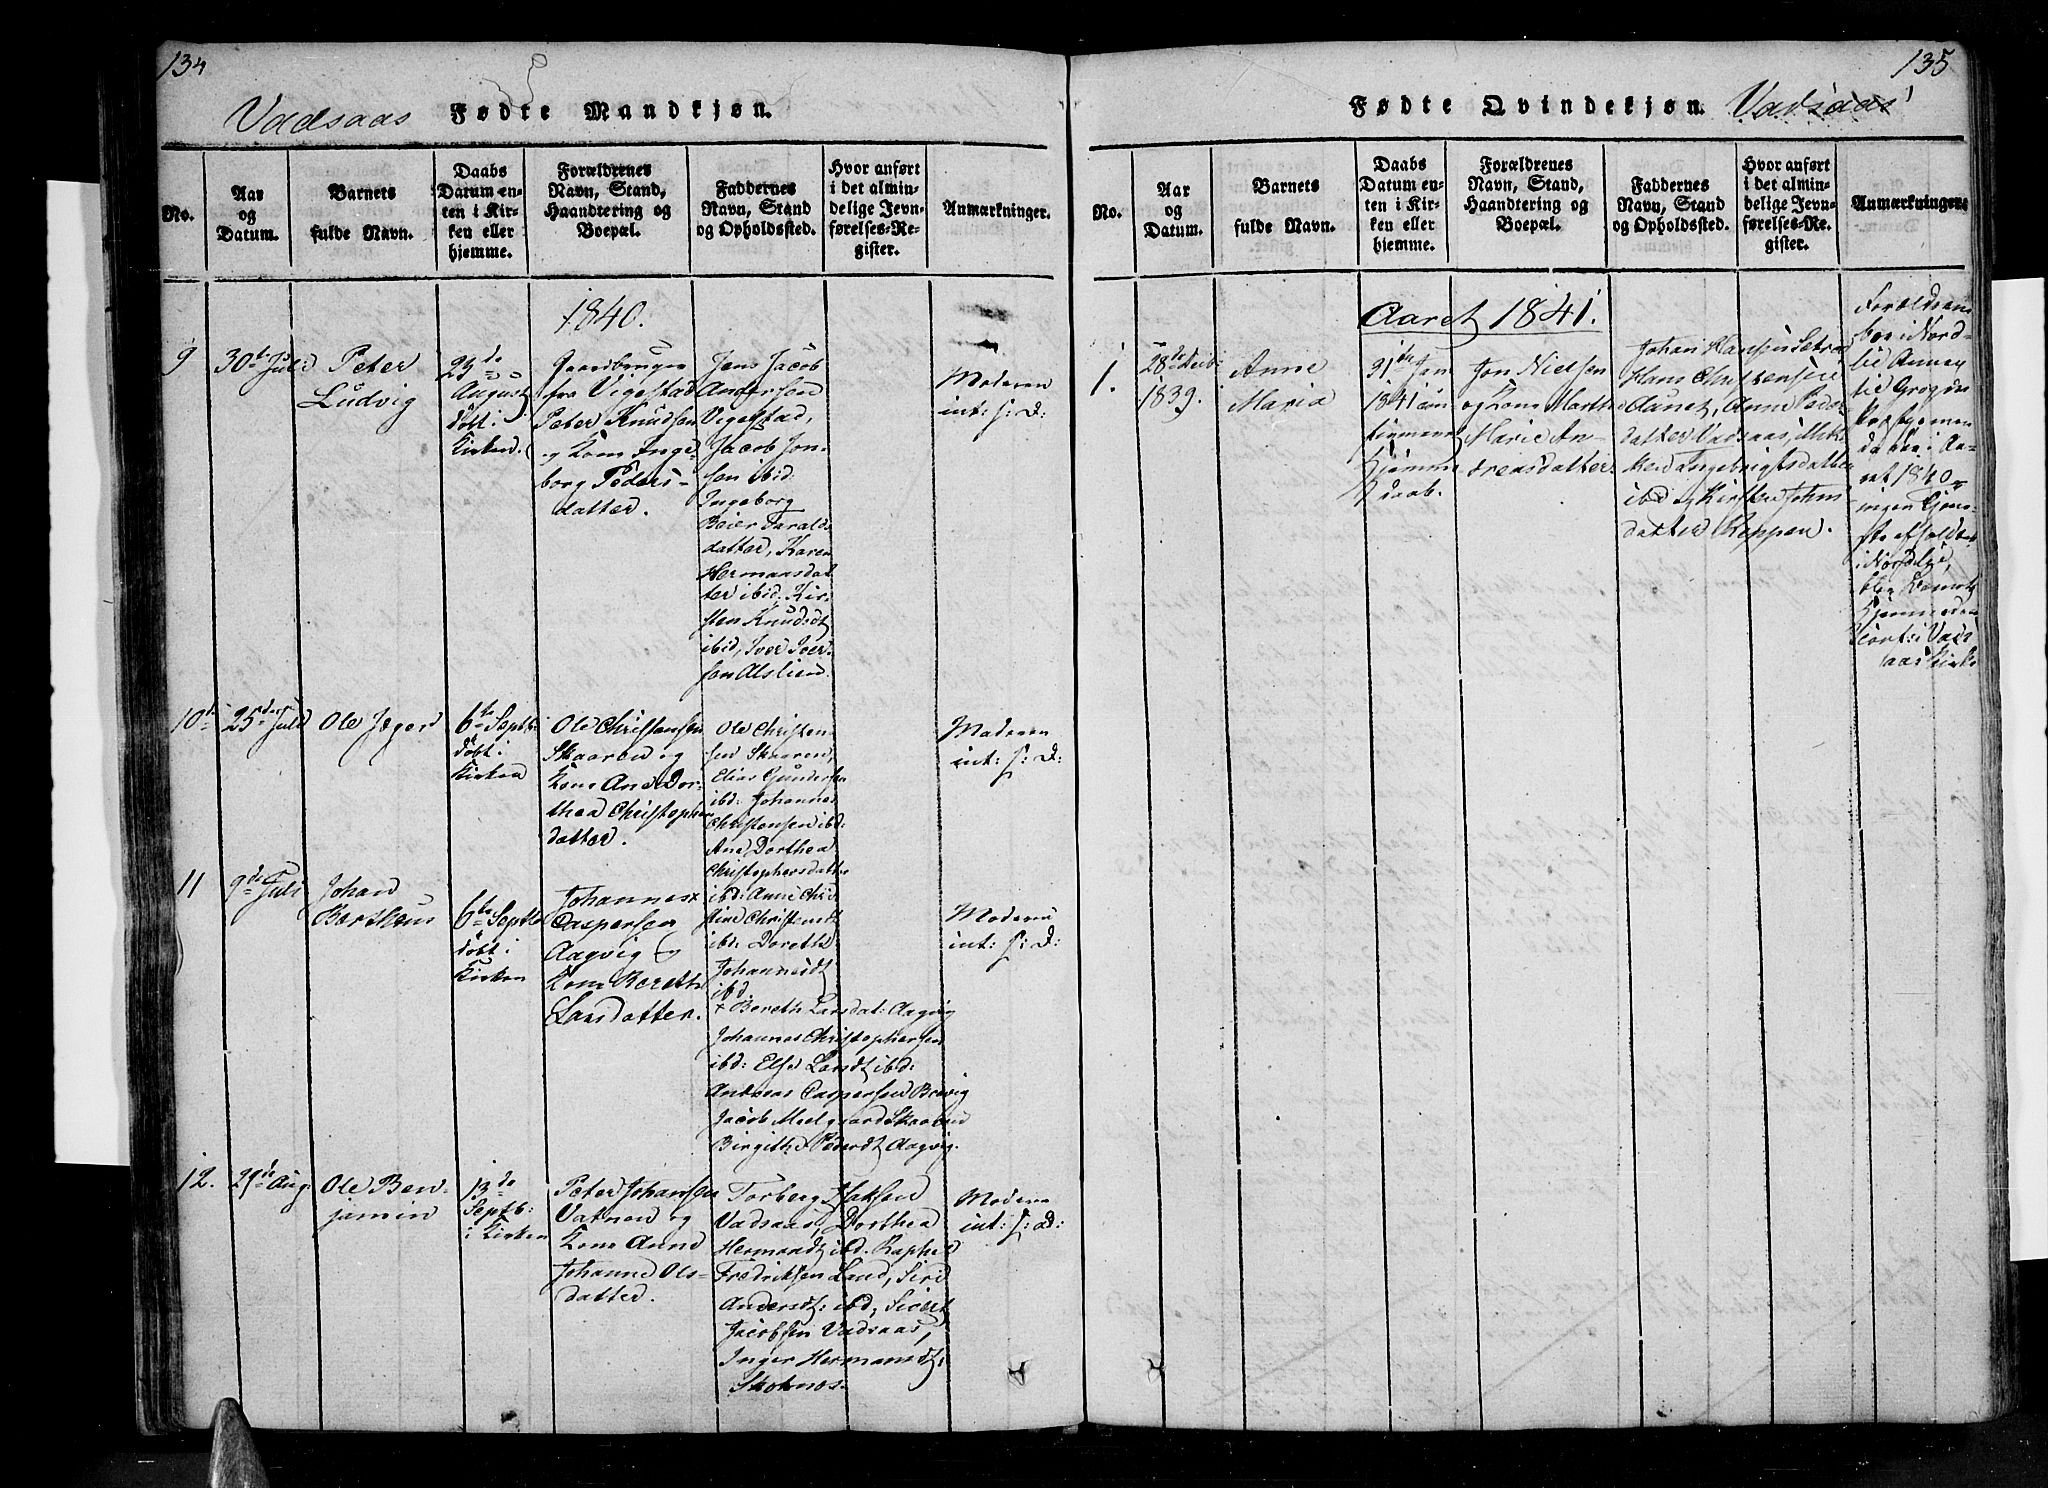 134
Vadsaas Fødte Mandkjøn.
No.
Aar
og
Datum.
Barnets
fulde Navn.
Daabs
Datum en-
ten i Kir-
ken eller
hjemme.
Forældrenes
Navn, Stand,
Haandtering og
Boepæl.
Faddernes
Navn, Stand
og Opholdssted.
Hvor anført
i det almin-
delige Jevn-
førelses-Re-
gister.
Anmærkninger.
1840.
9
30te Juli
Peter
Ludvig
23de
August
døbt i
Kirken.
fra Vigestad
Peter Knudsen
og Kone Inge-
borg Peders-
datter.
Jens Jacob
Andersen
Vigestad,
Jacob Jon-
sen ibid:
Ingeborg
Beier Farald
datter, Karen
Hermansdat
ter ibid: Kir
sten Knudsdt
ibid, Iver Iver-
sen Alslien.
Moderen
int: s: D:
10de
25de Juli
Ole Jæger
6te Septb:
døbt i
Kirken
Ole Christensen
Skaaren og
Kone Ane Dor-
thea Christopher
datter.
Ole Christen-
sen Skaaren,
Elias Gundersen
ibd: Johannes
Christensen ibd:
Ane Dorthea
Christophersdatter
ibd: Anne Chri
stine Christensdt
ibd: Dorethe
Johannesdt
ibd
Moderen
int: s: D:
11
9de Juli
Johan
6te Septbr
døbt i
Kirken
Johannes x
Caspersen
Aagvig og
Kone Bereth
Larsdatter.
x Bereth Larsdat: Aagvig
Johannes Christophersen
ibd: Else Larsdt ibd:
Andreas Caspersen
Jacob Meelgaard Skaaren
Birgithe Pedersdt Aagvig.
Moderen
int: s: D:
12.
29de Aug.
Ole Ben-
jamin
13de
Septb:
i Kirken
Peter Johansen
Vatnen og
Kone Anne
Johanne Ols-
datter.
Torberg Isaksen
Vadsaas, Dorthea
Hermansdt ibd. Raphel
Fredriksen Land, Siri
Andersdt: ibd, Sivert
Jacobsen Vadsaas,
Inger Hermansdt:
Skotnes.
Moderen
int: s: D:
135
Fødte Qvindekjøn. Vadsaas
No.
Aar
og
Datum.
Barnets
fulde Navn.
Daabs
Datum en-
ten i Kir-
ken eller
hjemme.
Forældrenes
Navn, Stand,
Haandtering og
Boepæl.
Faddernes
Navn, Stand
og Opholdssted.
Hvor anført
i det almin-
delige Jevn-
førelses-Re-
gister.
Anmærkninger.
Aaret 1841.
1.
28de
1839.
Anne
Maria
31te Jan
1841
Hjemme
daab.
Jon Nielsen
og Kone Marth
Marie An-
dreasdatter.
Johan Hansen
Hans Christensen
Aunet, Anne Peder
datter Vadsaas,
Ingebrigtsdatter
ibd og Kirsten John
datter Reppen.
Forældrene
boe i Nord-
lie
da der i Aa-
ret 1840
ingen Tjene-
ste afholdtes
i Nordlie,
blev Barnet
Hjemmedøbt
i Vads
aas Kirke